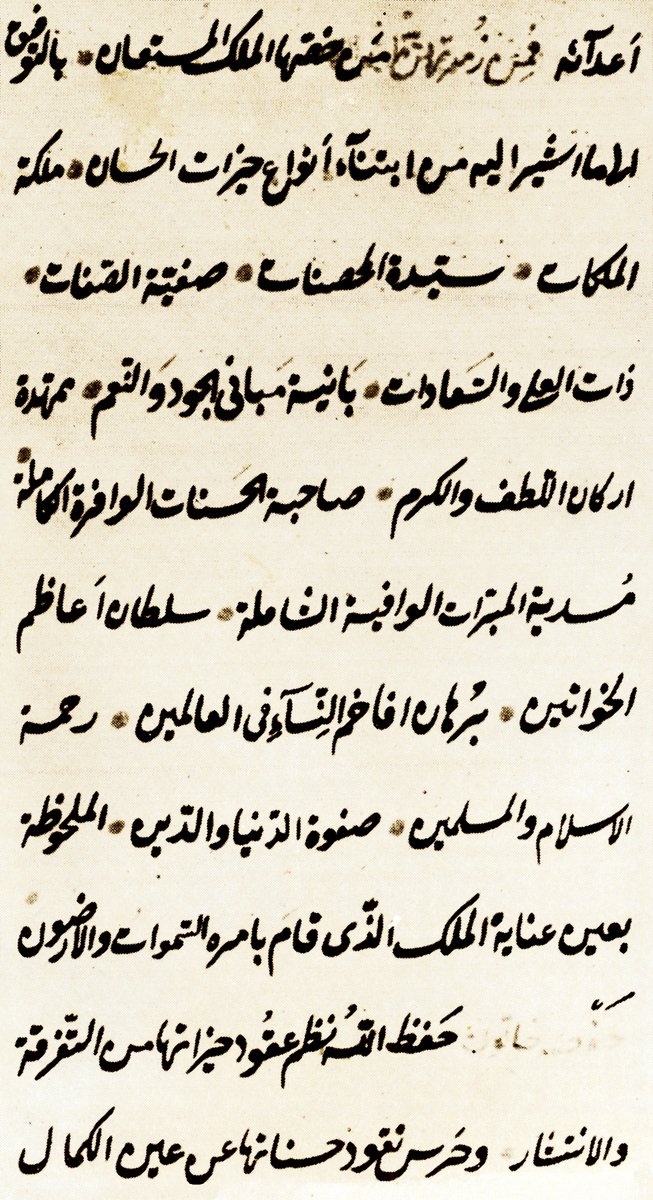 أعدائه فمن زمرتهن من خصّها الملك المستعان بالتوفيق
لها ما اشير اليه من ابتناء أنواع خيرات الحسان ملكة
الملكات سيّدة المحصنات صفيّة الصّفات
ذات العلى والسّعادات بَانية مَبانى الجود وَالنّعم ممهّدة
اركان اللّطف والكرم صاحبة الحَسنات الوافرة الكاملة
مُسدية المبرّات الوافية الشاملة سلطان أعاظم
الخواتين بُرهان افاخم النِّسَآءِ فى العالمين رحمة
الاسلام والمسلمين صفوة الدّنيا والدّين الملحوظة
بعين عناية الملك الذّى قام بامره السّموات والارضون
حَفظ اللّهُ نظم عقُود خيراتها من التّفرقة
والانتشار وحَرس نقود حسناتها عن عين الكمال